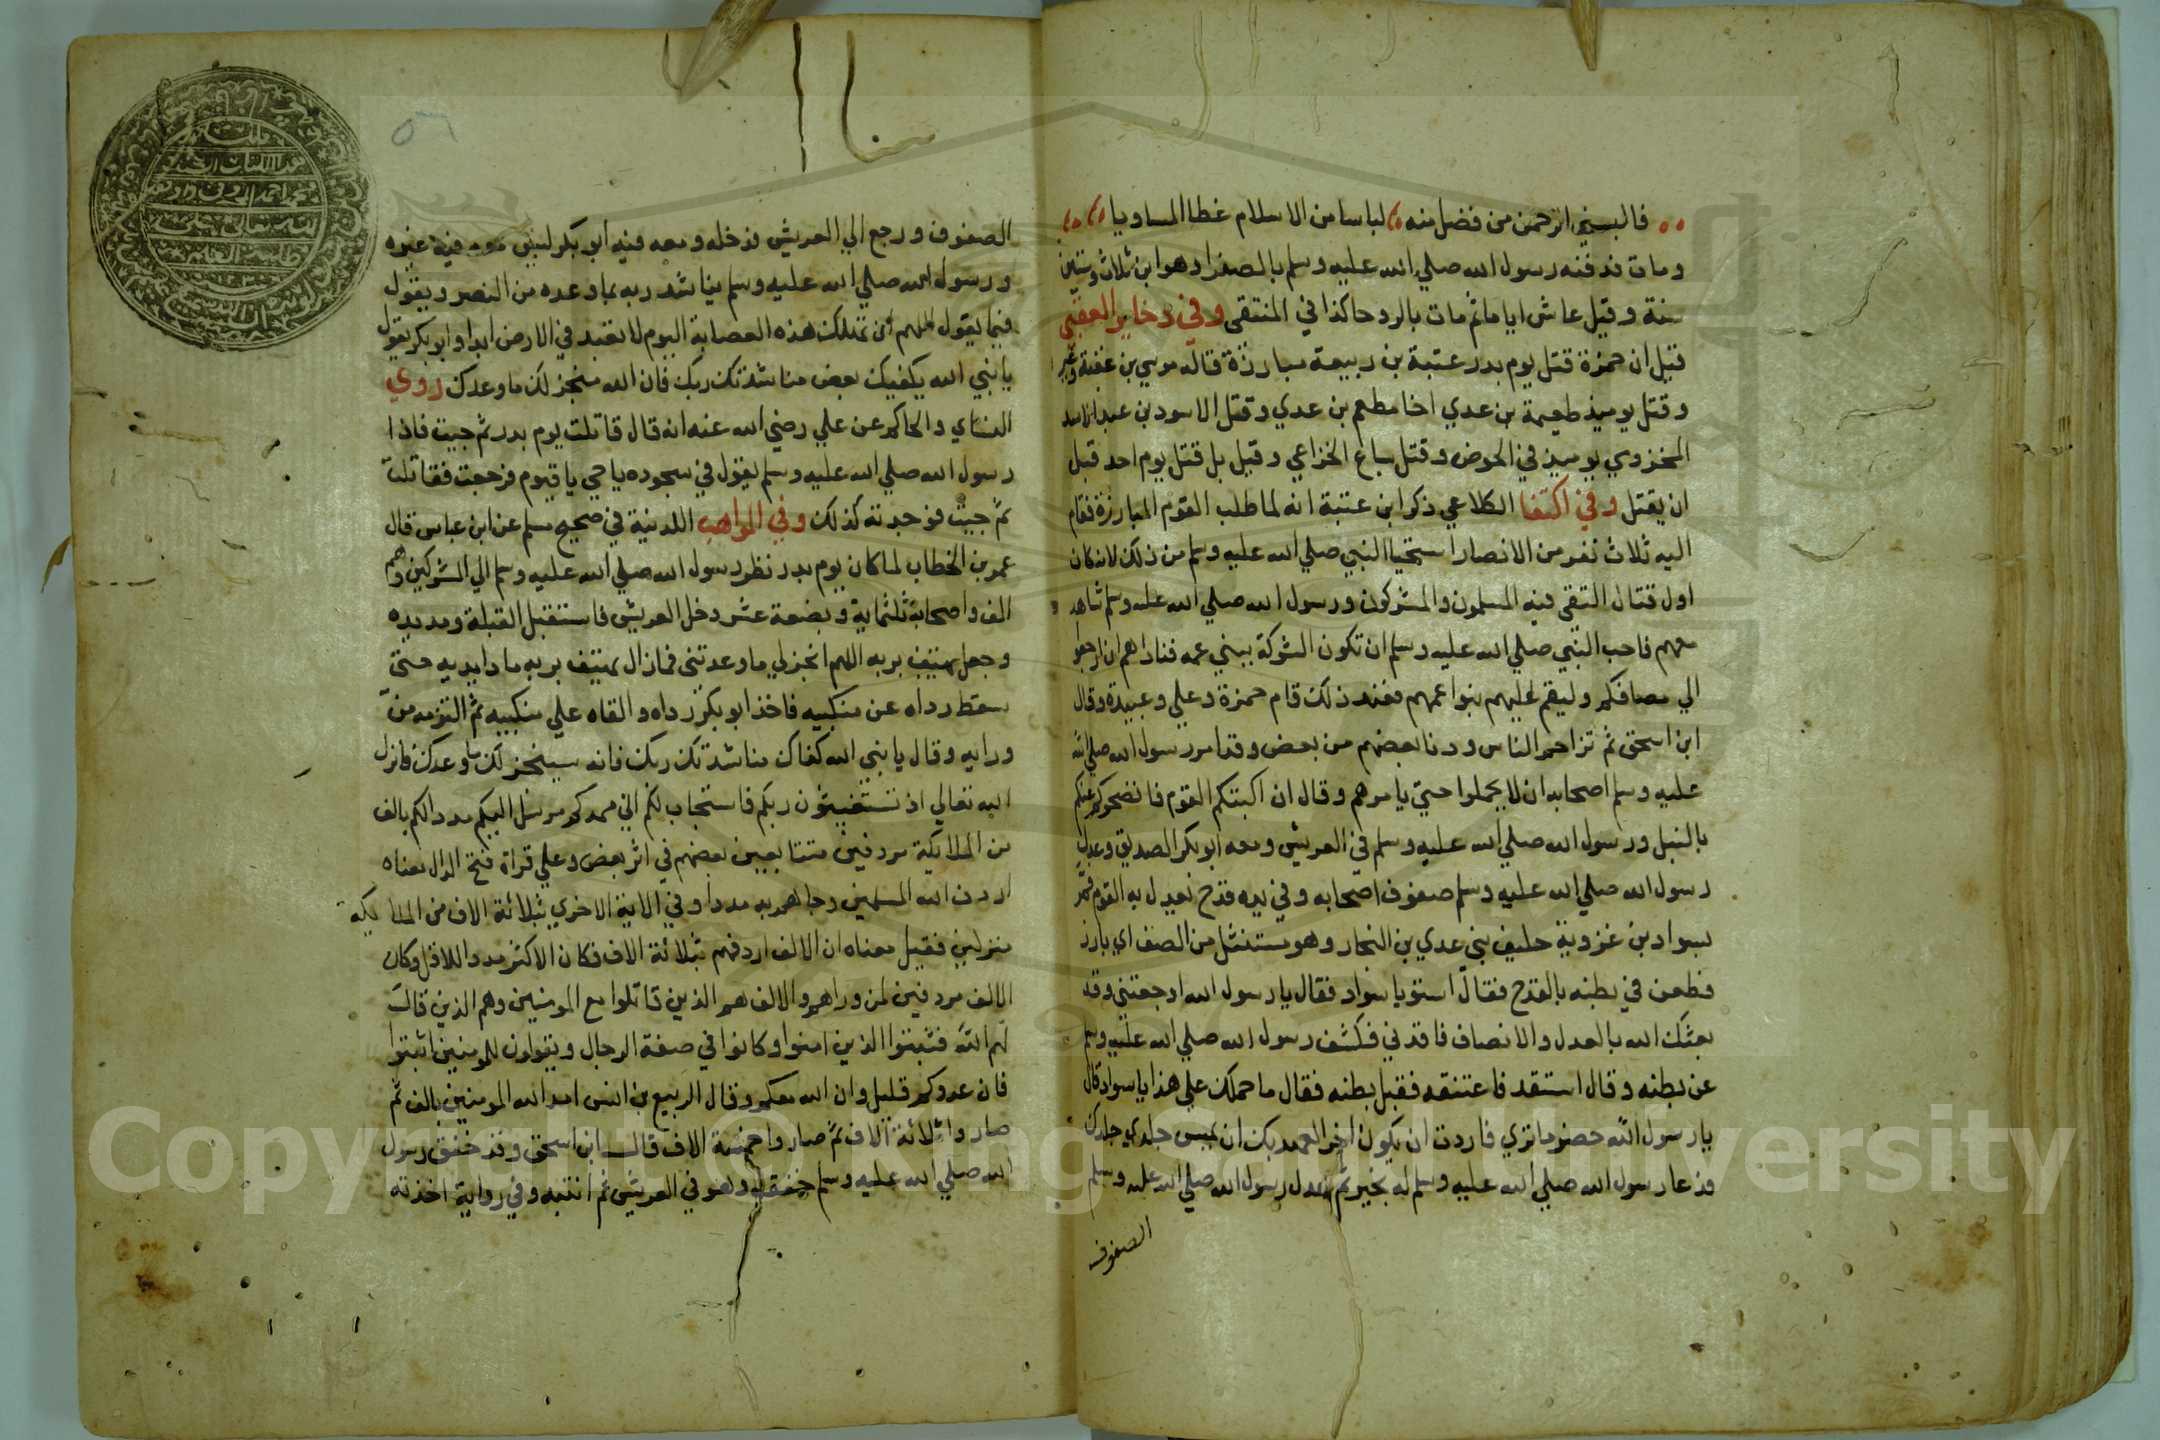 فالبسني الرحمن من فضل منه لباسا من الاسلام غطا المساويا
ومات فدفنه رسول الله صلي الله عليه وسلم بالصفرا وهو ابن ثلاث وستين
سنة وقيل عاش اياما ثم مات بالروحا كذا في المنتقى وفي دخاير العقبي
قيل ان حمزة قتل يوم بدر عتبة بن ربيعة مبارزة قاله موسي بن عقبة
وقتل يوميذ طعيمة بن عدي اخا مطعم بن عدي وقتل الاسود بن عبد الاسد
المخزومي يوميذ في الحوض وقتل سباع الخزاعي وقيل بل قتل يوم احد قبل
ان يقتل وفي اكتفا الكلاعي ذكر ابن عتبة انه لما طلب القوم المبارزة فقام
اليه ثلاث نفر من الانصار استحيا النبي صلي الله عليه وسلم من ذلك لانه كان
اول قتال التقى فيه المسلمون والمشركون ورسول الله صلي الله عليه وسلم شاهد
معهم فاحب النبي صلي الله عليه وسلم ان تكون الشوكة ببني عمه فناداهم ان ارجعوا
الي مصافكم وليقم اليهم بنوا عمهم فعند ذلك قام حمزة وعلي وعبيدة وقال
ابن اسحق ثم تزاحم الناس ودنا بعضهم من بعض وقد امر رسول الله صلي الله
عليه وسلم اصحابه ان لا يحملوا حتي يامرهم وقال ان اكبتكم القوم فانضحوهم عنكم
بالنبل ورسول الله صلي الله عليه وسلم في العريش ومعه ابو بكر الصديق وعدل
رسول الله صلي الله عليه وسلم صفوف اصحابه وفي يده قدح يعدل به القوم فمر
بسواد بن غزوية حليف بني عدي بن النجار وهو مستنثل من الصف اي بارز
فطعن في بطنه بالقدح فقال استو يا سواد فقال يا رسول الله اوجعتني وقد
بعثك الله بالعدل والانصاف فاقدني فكشف رسول الله صلي الله عليه وسلم
عن بطنه وقال استقد فاعتنقه فقبل بطنه فقال ما حملك علي هذا يا سواد قال
يا رسول الله حضر ما تري فاردت ان يكون اخر العهد بك ان يمس جلدي جلدك
فدعا رسول الله صلي الله عليه وسلم له بخير ثم عدل رسول الله صلي الله عليه وسلم
الصفوف
الصفوف ورجع الي العريش فدخله ومعه فيه ابو بكر ليس معه فيه غيره
ورسول الله صلي الله عليه وسلم يناشد ربه بما وعده من النصر ويقول
فيما يقول اللهم ان تهلك هذه العصابة اليوم لا تعبد في الارض ابدا وابو بكر يقول
يا نبي الله يكفيك بعض مناشدتك ربك فان الله منجز لك ما وعدك روي
النساي والحاكم عن علي رضي الله عنه انه قال قاتلت يوم بدر ثم جيت فاذا
رسول الله صلي الله عليه وسلم يقول في سجوده يا حي يا قيوم فرجعت فقاتلت
ثم جيت فوجدته كذلك وفي المواهب اللدنية في صحيح مسلم عن ابن عباس قال
عمر بن الخطاب لما كان يوم بدر نظر رسول الله صلي الله عليه وسلم الي المشركين وهم
الف واصحابه ثلثماية وبضعة عشر دخل العريش فاستقبل القبلة ومد يده
وجعل يهتف بربه اللهم انجز لي ما وعدتني فما زال يهتف بربه مادا يديه حتي
سقط رداه عن منكبيه فاخذ ابو بكر رداه والقاه علي منكبيه ثم التزمه من
ورايه وقال يا نبي الله كفاك مناشدتك ربك فانه سينجز لك ما وعدك فانزل
الله تعالي اذ تستغيثون ربكم فاستجاب لكم اني ممدكم مرسل اليكم مددا لكم بالف
من الملايكة مردفين متتابعين بعضهم في اثر بعض وعلي قراة فتح الدال معناه
اردف الله المسلمين وجاهم به مددا وفي الاية الاخري بثلاثة الاف من الملايكة
منزلين فقيل معناه ان الالف اردفهم بثلاثة الاف فكان الاكثر مددا للاقل وكان
الالف مردفين لمن وراهم والالف هم الذين قاتلوا مع المومنين وهم الذين قال
لهم الله فثبتوا الذين امنوا وكانوا في صفة الرجال ويقولون للمومنين اثبتوا
فان عدوكم قليل وان الله معكم وقال الربيع بن انس امد الله المومنين بالف ثم
صاروا ثلاثة الاف ثم صاروا خمسة الاف قال ابن اسحق وقد خفق رسول
الله صلي الله عليه وسلم خفقة وهو في العريش ثم انتبه وفي رواية اخذته
Copyright © King Saud University